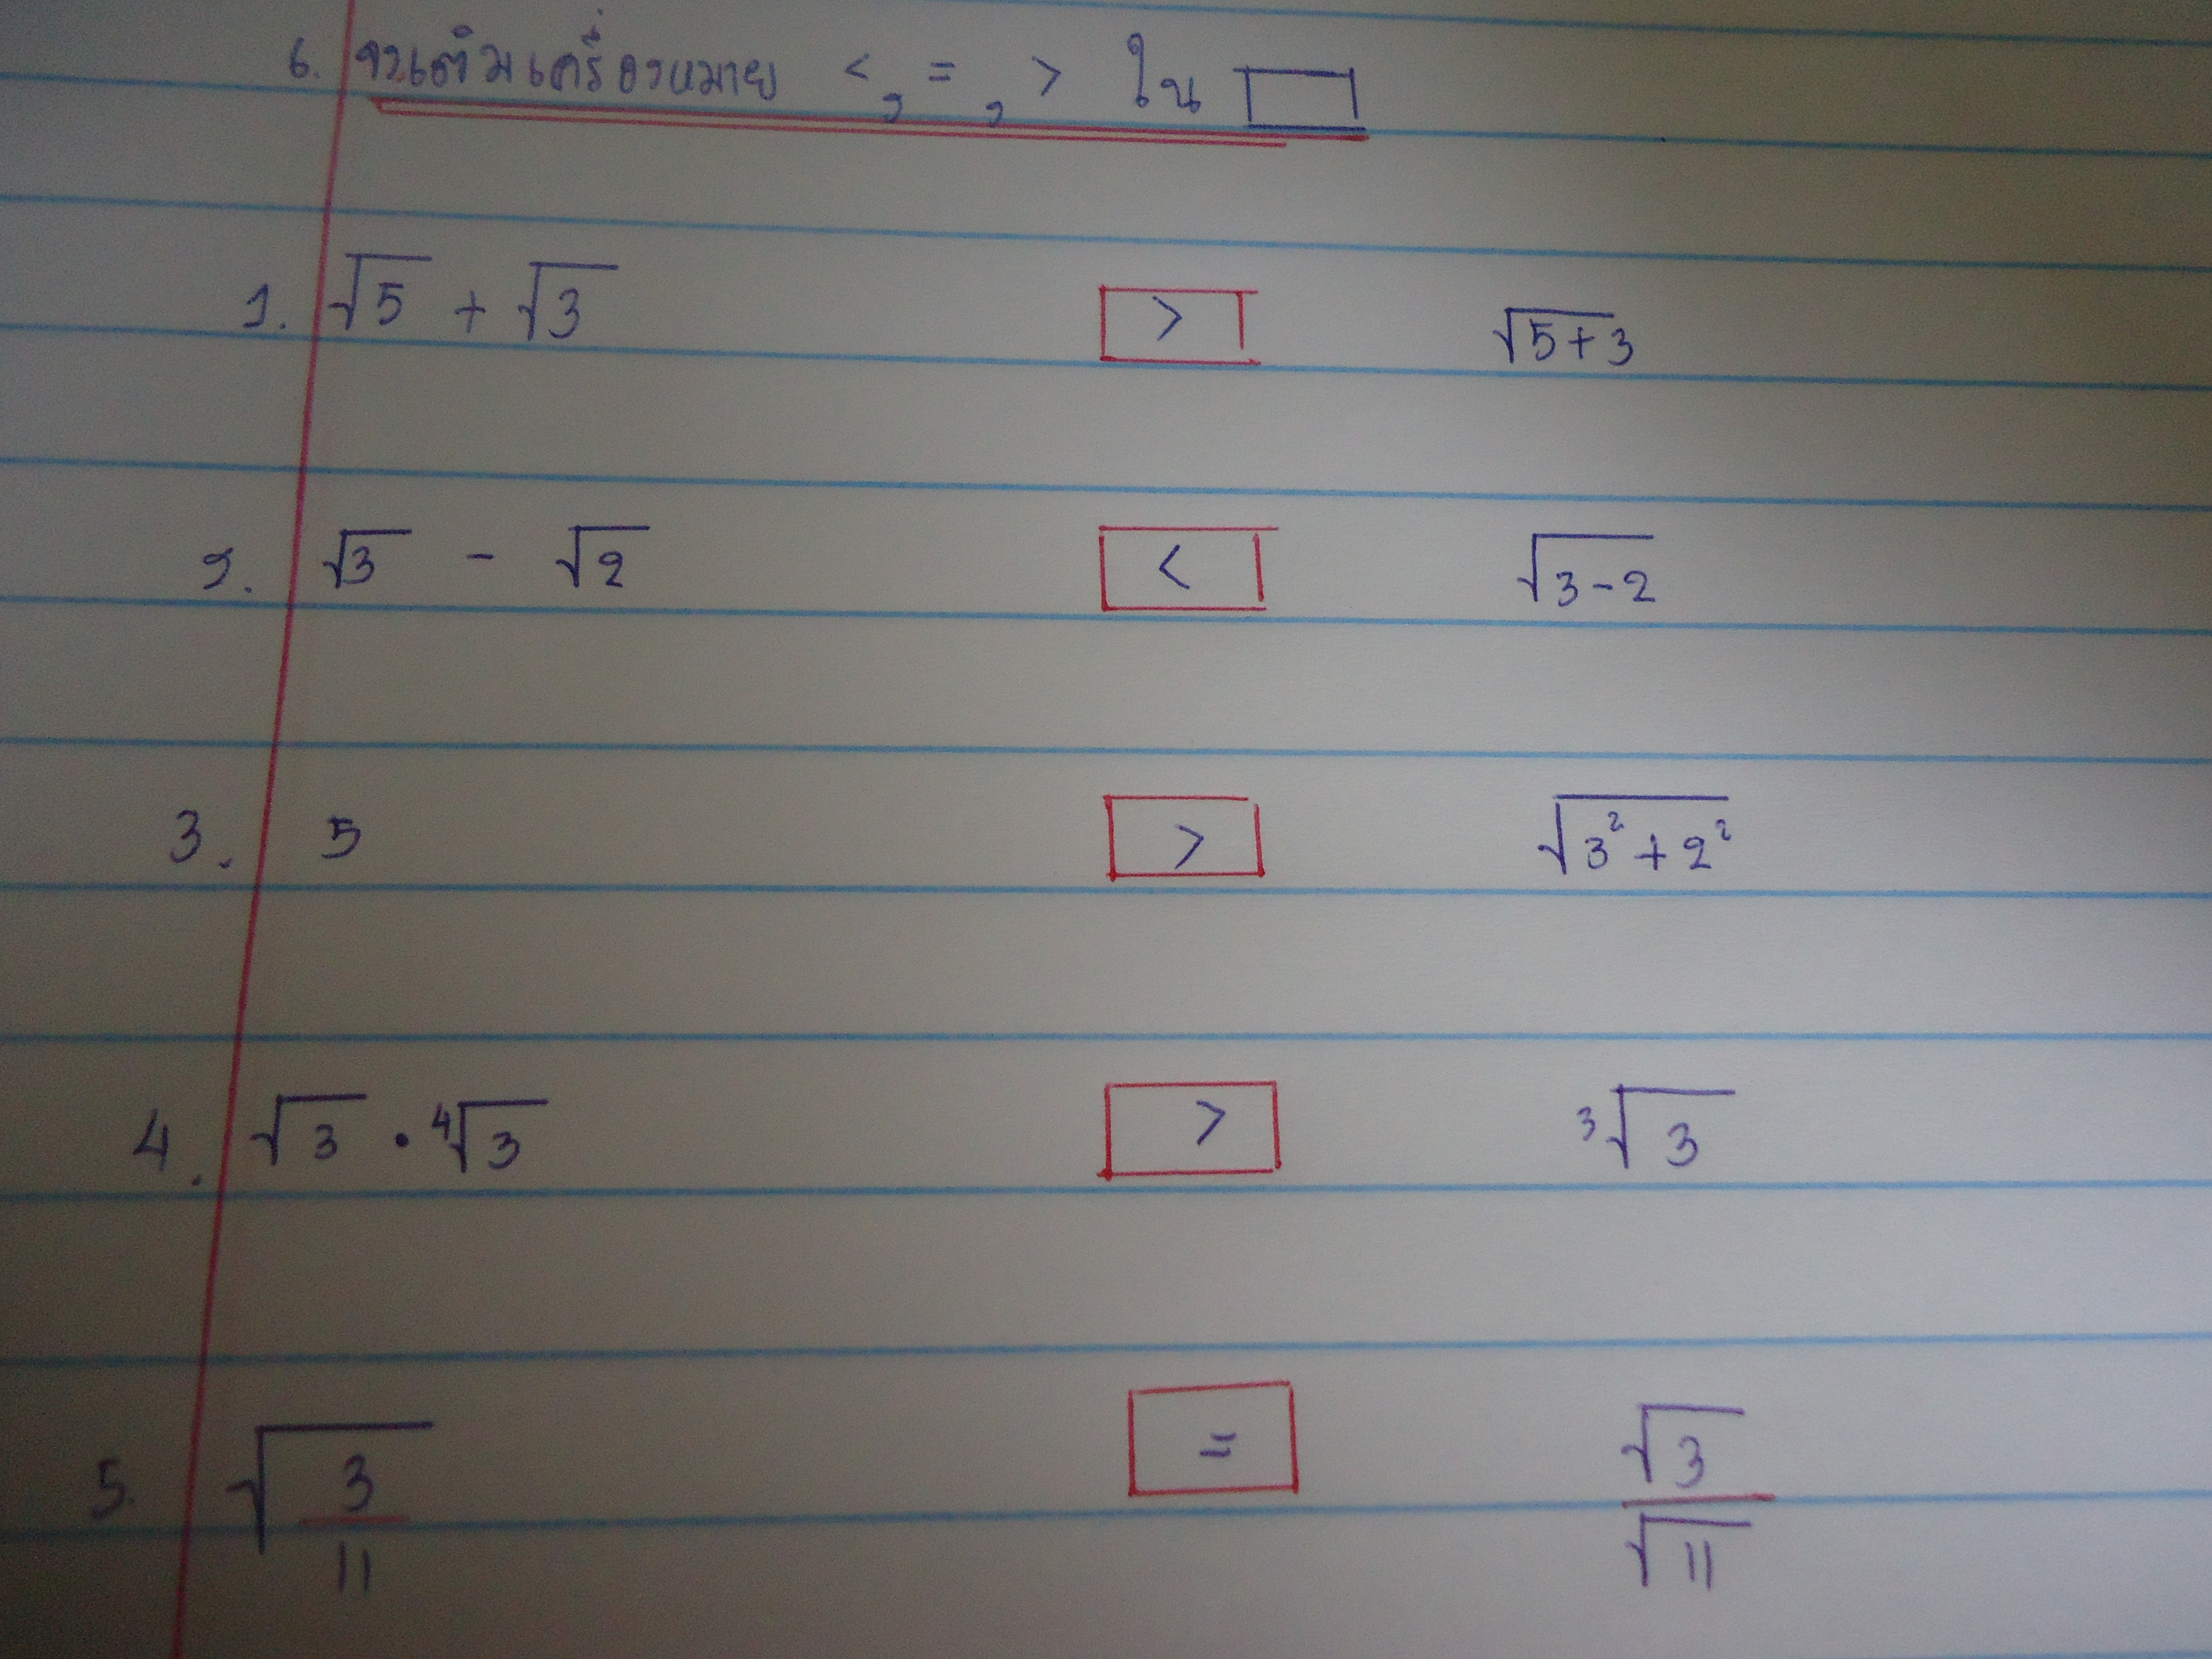 6. จงเติมเครื่องหมาย < , = , > ใน □
1. √5 + √3 > √5+3
2. √3 - √2 < √3-2
3. 5 > √3²+2²
4. √3 · ⁴√3 > ³√3
5. √3/11 = √3/√11